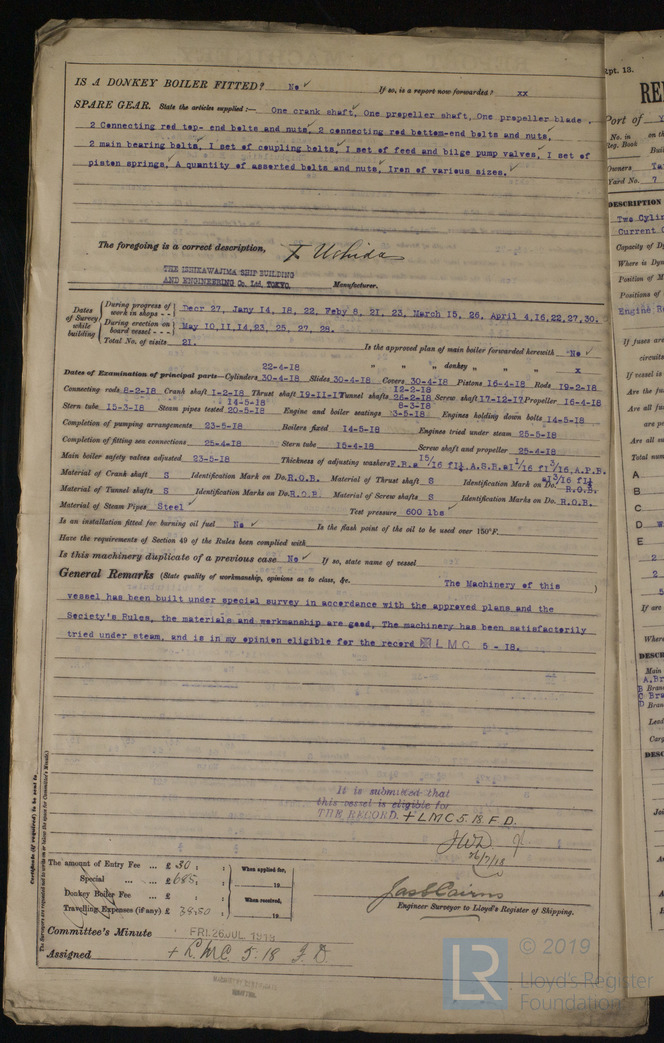 IS A DONKEY BOILER FITTED? No ✓ If so, is a report now forwarded? xx
SPARE GEAR. State the articles supplied :— One crank shaft, One propeller shaft, One propeller blade,
2 Connecting rod top- end bolts and nuts, 2 connecting rod bottom-end bolts and nuts,
2 main bearing bolts, I set of coupling bolts, I set of feed and bilge pump valves, I set of
piston springs, A quantity of assorted bolts and nuts, Iron of various sizes.
The foregoing is a correct description, Uchida
THE ISHIKAWAJIMA SHIP BUILDING
AND ENGINEERING Co. Ltd. TOKYO. Manufacturer.
Dates of Survey while building
During progress of work in shops - - Decr 27, Jany 14, 18, 22, Feby 8, 21, 23, March 15, 26, April 4,16,22,27,30.
During erection on board vessel - - - May 10,11,14,23, 25, 27, 28.
Total No. of visits 21. Is the approved plan of main boiler forwarded herewith No ✓
" " " donkey " " " x
22-4-18
Dates of Examination of principal parts—Cylinders 30-4-18 Slides 30-4-18 Covers 30-4-18 Pistons 16-4-18 Rods 19-2-18
12-2-18
Connecting rods 8-2-18 Crank shaft 1-2-18 Thrust shaft 19-11-17 Tunnel shafts 26-2-18 Screw shaft 17-12-17 Propeller 16-4-18
14-5-18 8-3-18
Stern tube 15-3-18 Steam pipes tested 20-5-18 Engine and boiler seatings 3-5-18 Engines holding down bolts 14-5-18
Completion of pumping arrangements 23-5-18 Boilers fixed 14-5-18 Engines tried under steam 25-5-18
Completion of fitting sea connections 25-4-18 Stern tube 15-4-18 Screw shaft and propeller 25-4-18
Main boiler safety valves adjusted 23-5-18 Thickness of adjusting washers
Material of Crank shaft S Identification Mark on Do. R.O.B. Material of Thrust shaft S Identification Mark on Do. R.O.B.
Material of Tunnel shafts S Identification Marks on Do. R.O.B. Material of Screw shafts S Identification Marks on Do. R.O.B.
Material of Steam Pipes Steel ✓ Test pressure 600 lbs ✓
Is an installation fitted for burning oil fuel No ✓ Is the flash point of the oil to be used over 150°F.
Have the requirements of Section 49 of the Rules been complied with
Is this machinery duplicate of a previous case No ✓ If so, state name of vessel
General Remarks (State quality of workmanship, opinions as to class, &c. The Machinery of this
vessel has been built under special survey in accordance with the approved plans and the
Society's Rules, the materials and workmanship are good, The machinery has been satisfactorily
tried under steam, and is in my opinion eligible for the record LMC 5-18.
It is submitted that
this vessel is eligible for
THE RECORD. + LMC 5.18. F.D.
26/7/18
The amount of Entry Fee ... £ 30 : : When applied for,
Special ... ... £ 685 : : 19
Donkey Boiler Fee ... £ : : When received,
Travelling Expenses (if any) £ 38.50 : 19
Jas Cairns
Engineer Surveyor to Lloyd's Register of Shipping.
Committee's Minute FRI. 26 JUL 1918
Assigned + LMC 5.18 F.D.
Certificate (if required) to be sent to
The Surveyors are requested not to write on or below the space for Committee's Minute.
Rpt. 13.
Port of Y
No. in Reg. Book
Owners
Yard No. 7
DESCRIPTION
Two Cylin
Current
Capacity of Dy
Where is Dyn
Position of M
Positions of
Engine R
If fuses are
circuits
If vessel is
Are the fu
Are all fu
are pe
Are all
Total num
A
B
C
D
E
If are
Where
DESCR
Main
A.Br
B Bran
C Br
D Bran
Lead
Carg
DESC
LR
© 2019
Lloyd's Register
Foundation